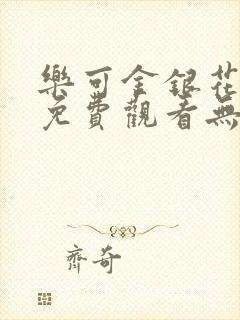 樂可金銀花
免費觀看無
齊奇